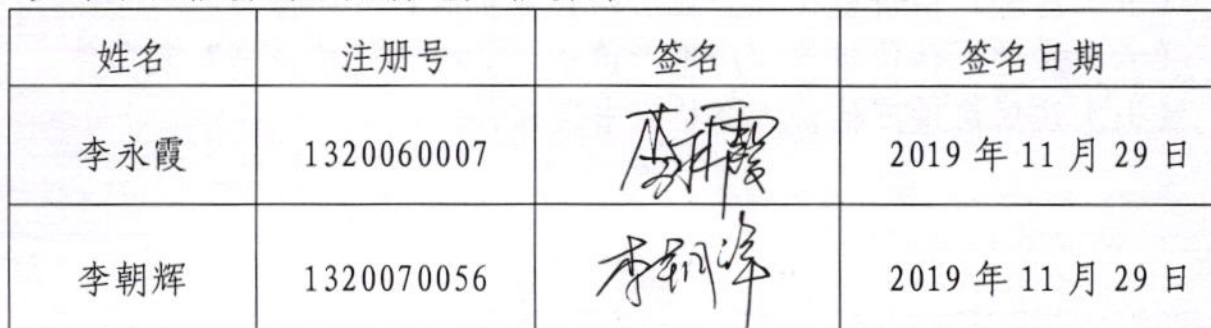 姓名 注册号 签名 签名日期
李永霞 1320060007 李永霞 2019 年 11 月 29 日
李朝辉 1320070056 李朝辉 2019 年 11 月 29 日